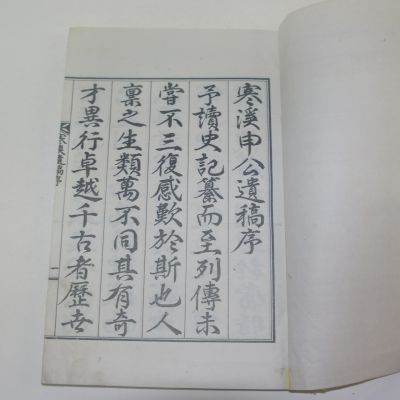 寒溪申公遺稿序
予讀史記纂而至列傳未
嘗不三復感歎於斯也人
稟之生類萬不同其有奇
才異行卓越千古者歷世
寒溪遺稿序
一